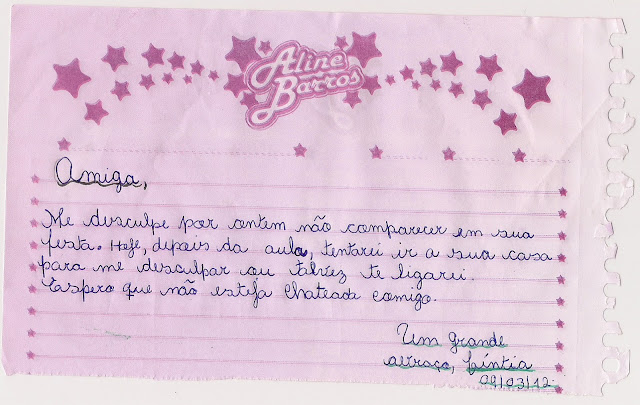 Aline
Barros
Amiga,
Me desculpe por ontem não comparecer em sua
festa. Hoje, depois da aula, tentarei ir a sua casa
para me desculpar ou talvez te ligarei.
Espero que não esteja chateada comigo.
Um grande
abraço, Cíntia
09/03/12